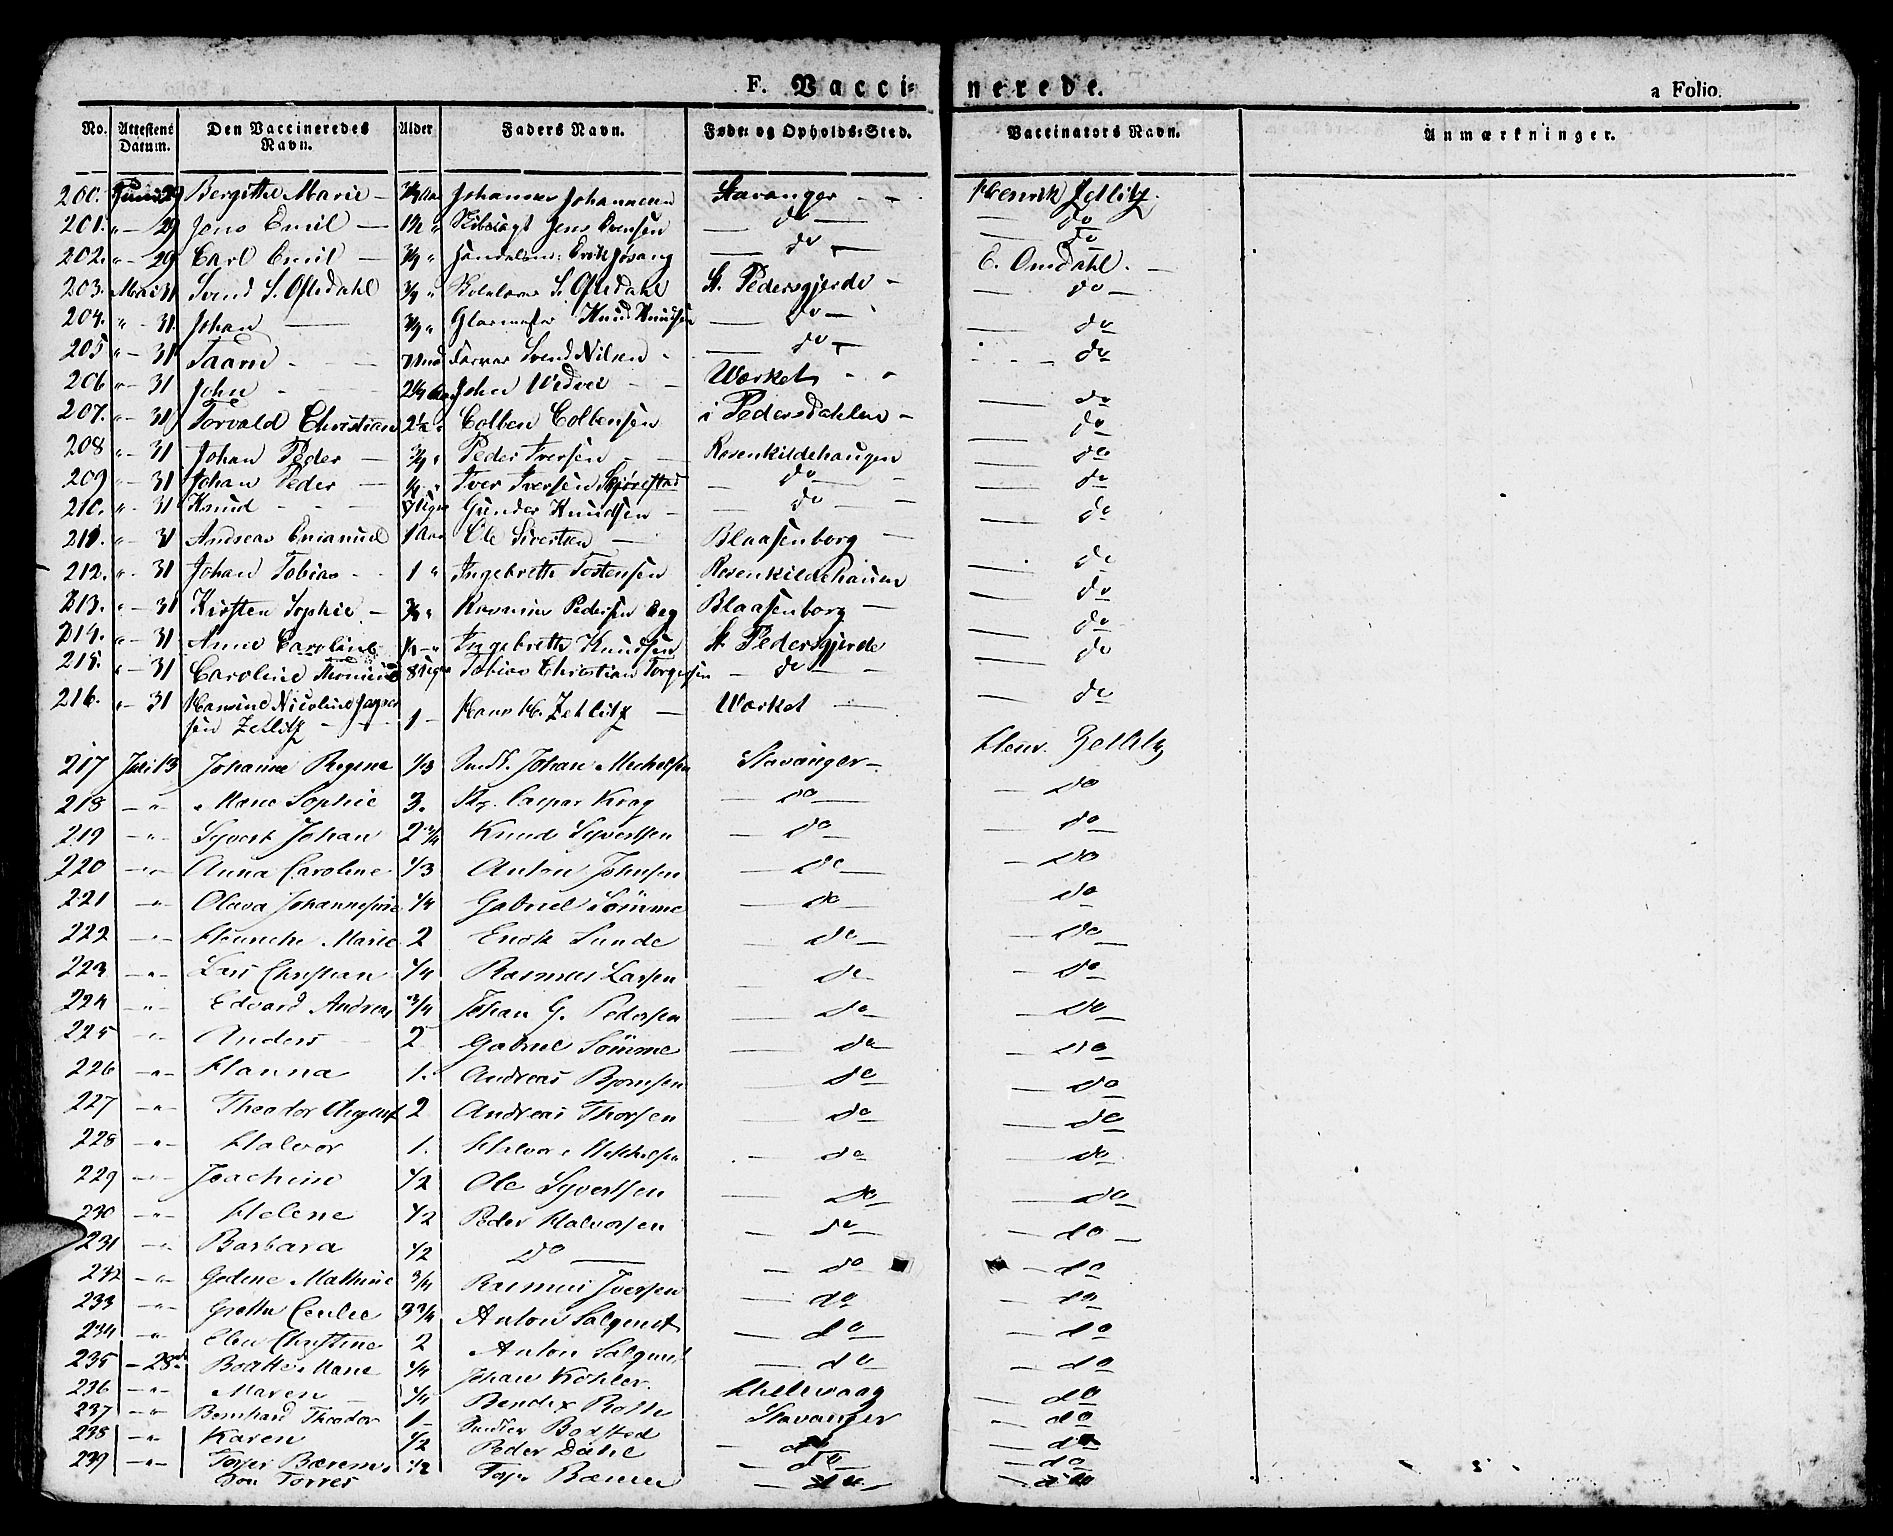 F. Vaccinerede.
a Folio.
No. Attestens Datum. Den Vaccineredes Navn. Alder Faders Navn. Føde- og Opholds-Sted. Vaccinators Navn. Anmærkninger.
200. Juni 29 Bergitte Marie — 3/4 Aar Johannes Johannesen Stavanger - - Henrik Zetlitz
201. " — 29 Jens Emil — " Jens Evensen — do — — do
202. " — 29 Carl Emil — 3/4 " Erik Jøsang — do — — do
203. Mai 31 Svend S. Oftedahl 3/4 " S. Oftedahl St. Pedersgjerde - E. Omdahl. —
204. " — 31. Johan — 3/4 " Glarmester Knud Knudsen — do — — do —
205 " — 31 Taarn - Svend Nilsen - — do — — do
206 " — 31 John - - John Wedvei - - Værket - - — do
207. " — 31 Torvald Christian 2½ " Colben Colbensen i Pedersdahlen - — do
208 " — 31 Johan Peder — 3/4 " Peder Iversen - — Rosenkildehaugen — do
209 " — 31 Johan Peder — Iver Iversen — do — — do
210. " — 31 Knud - - — Gunder Knudsen — — do — — do
211. " — 31 Andreas Emanuel 1 Aar Ole Sivertsen — Blaasenborg — — do
212. " — 31 Johan Tobias - - 1 " Ingebreth Tostensen Rosenkildehauen — do
213. " — 31 Kirsten Sophie — Rasmus Pedersen Blaasenborg — — do
214. " — 31 Anne Caroline Ingebreth Knudsen St. Pedersgjerde — do
215. " — 31 Caroline 8 Uger Tobias Christian Torgersen — do — — do
216. " — 31 Hansine Nicoline
sen Zetlitz - - 1 — Hans H. Zetlitz — Værket — — do
217 Juli 13 Johanna Regine 1/3 Johan Michelsen Stavanger — Henr. Zetlitz
218 — " — Maria Sophie 3. Caspar Krag — do — — do
219 — " — Syvert Johan 2 3/4 Knud Syvertsen — do — do
220 — " — Anna Caroline 1/3 Anton Johnsen — do — — do
221 — " — Olava Johannesine 1/4 Gabriel Sömme — do — do
222 — " — Marie 2 Erick Lunde — do — — do
223 — " — Lars Christian 1/4 Rasmus Larsen — do — do
224 — " — Edvard Andreas 3/4 Johan G. Pedersen — do — do
225 — " — Anders 2 Gabriel Sömme — do — do
226 — " — Hanna 1. Andreas Bjørnsen — do — do
227 — " — Theodor August 2 Andreas Thorsen — do — do
228 — " — Halvor 1. Halvor Mikkelsen — do — do
229 — " — Joachim 1/2 Ole Syvertsen — do — do
230 — " — Helene 1/2 Peder Halvorsen — do — do —
231 — " — Barbara 1/2 do — — do — do
232 — " — Gedene Mathine 3/4 Rasmus Iversen — do — do
233 — " — Grethe Cecilie 3 3/4 Anton Salqvist — do — — do
234 — " — Elen Christine 2 Anton Salqvist — do — — do
235 — 28 — Marie 1/4 Johan Köhler. Hillevaag — do
236 — " — Maren 1/4 Bendix Roth Stavanger — do
237 — " — Bernhard Theodor 1 — Bodsted — do — — do
238 — " — Karen 1/2 Peder Dahl — do — — do
239 — " — 1/2 — do — — do
Torres